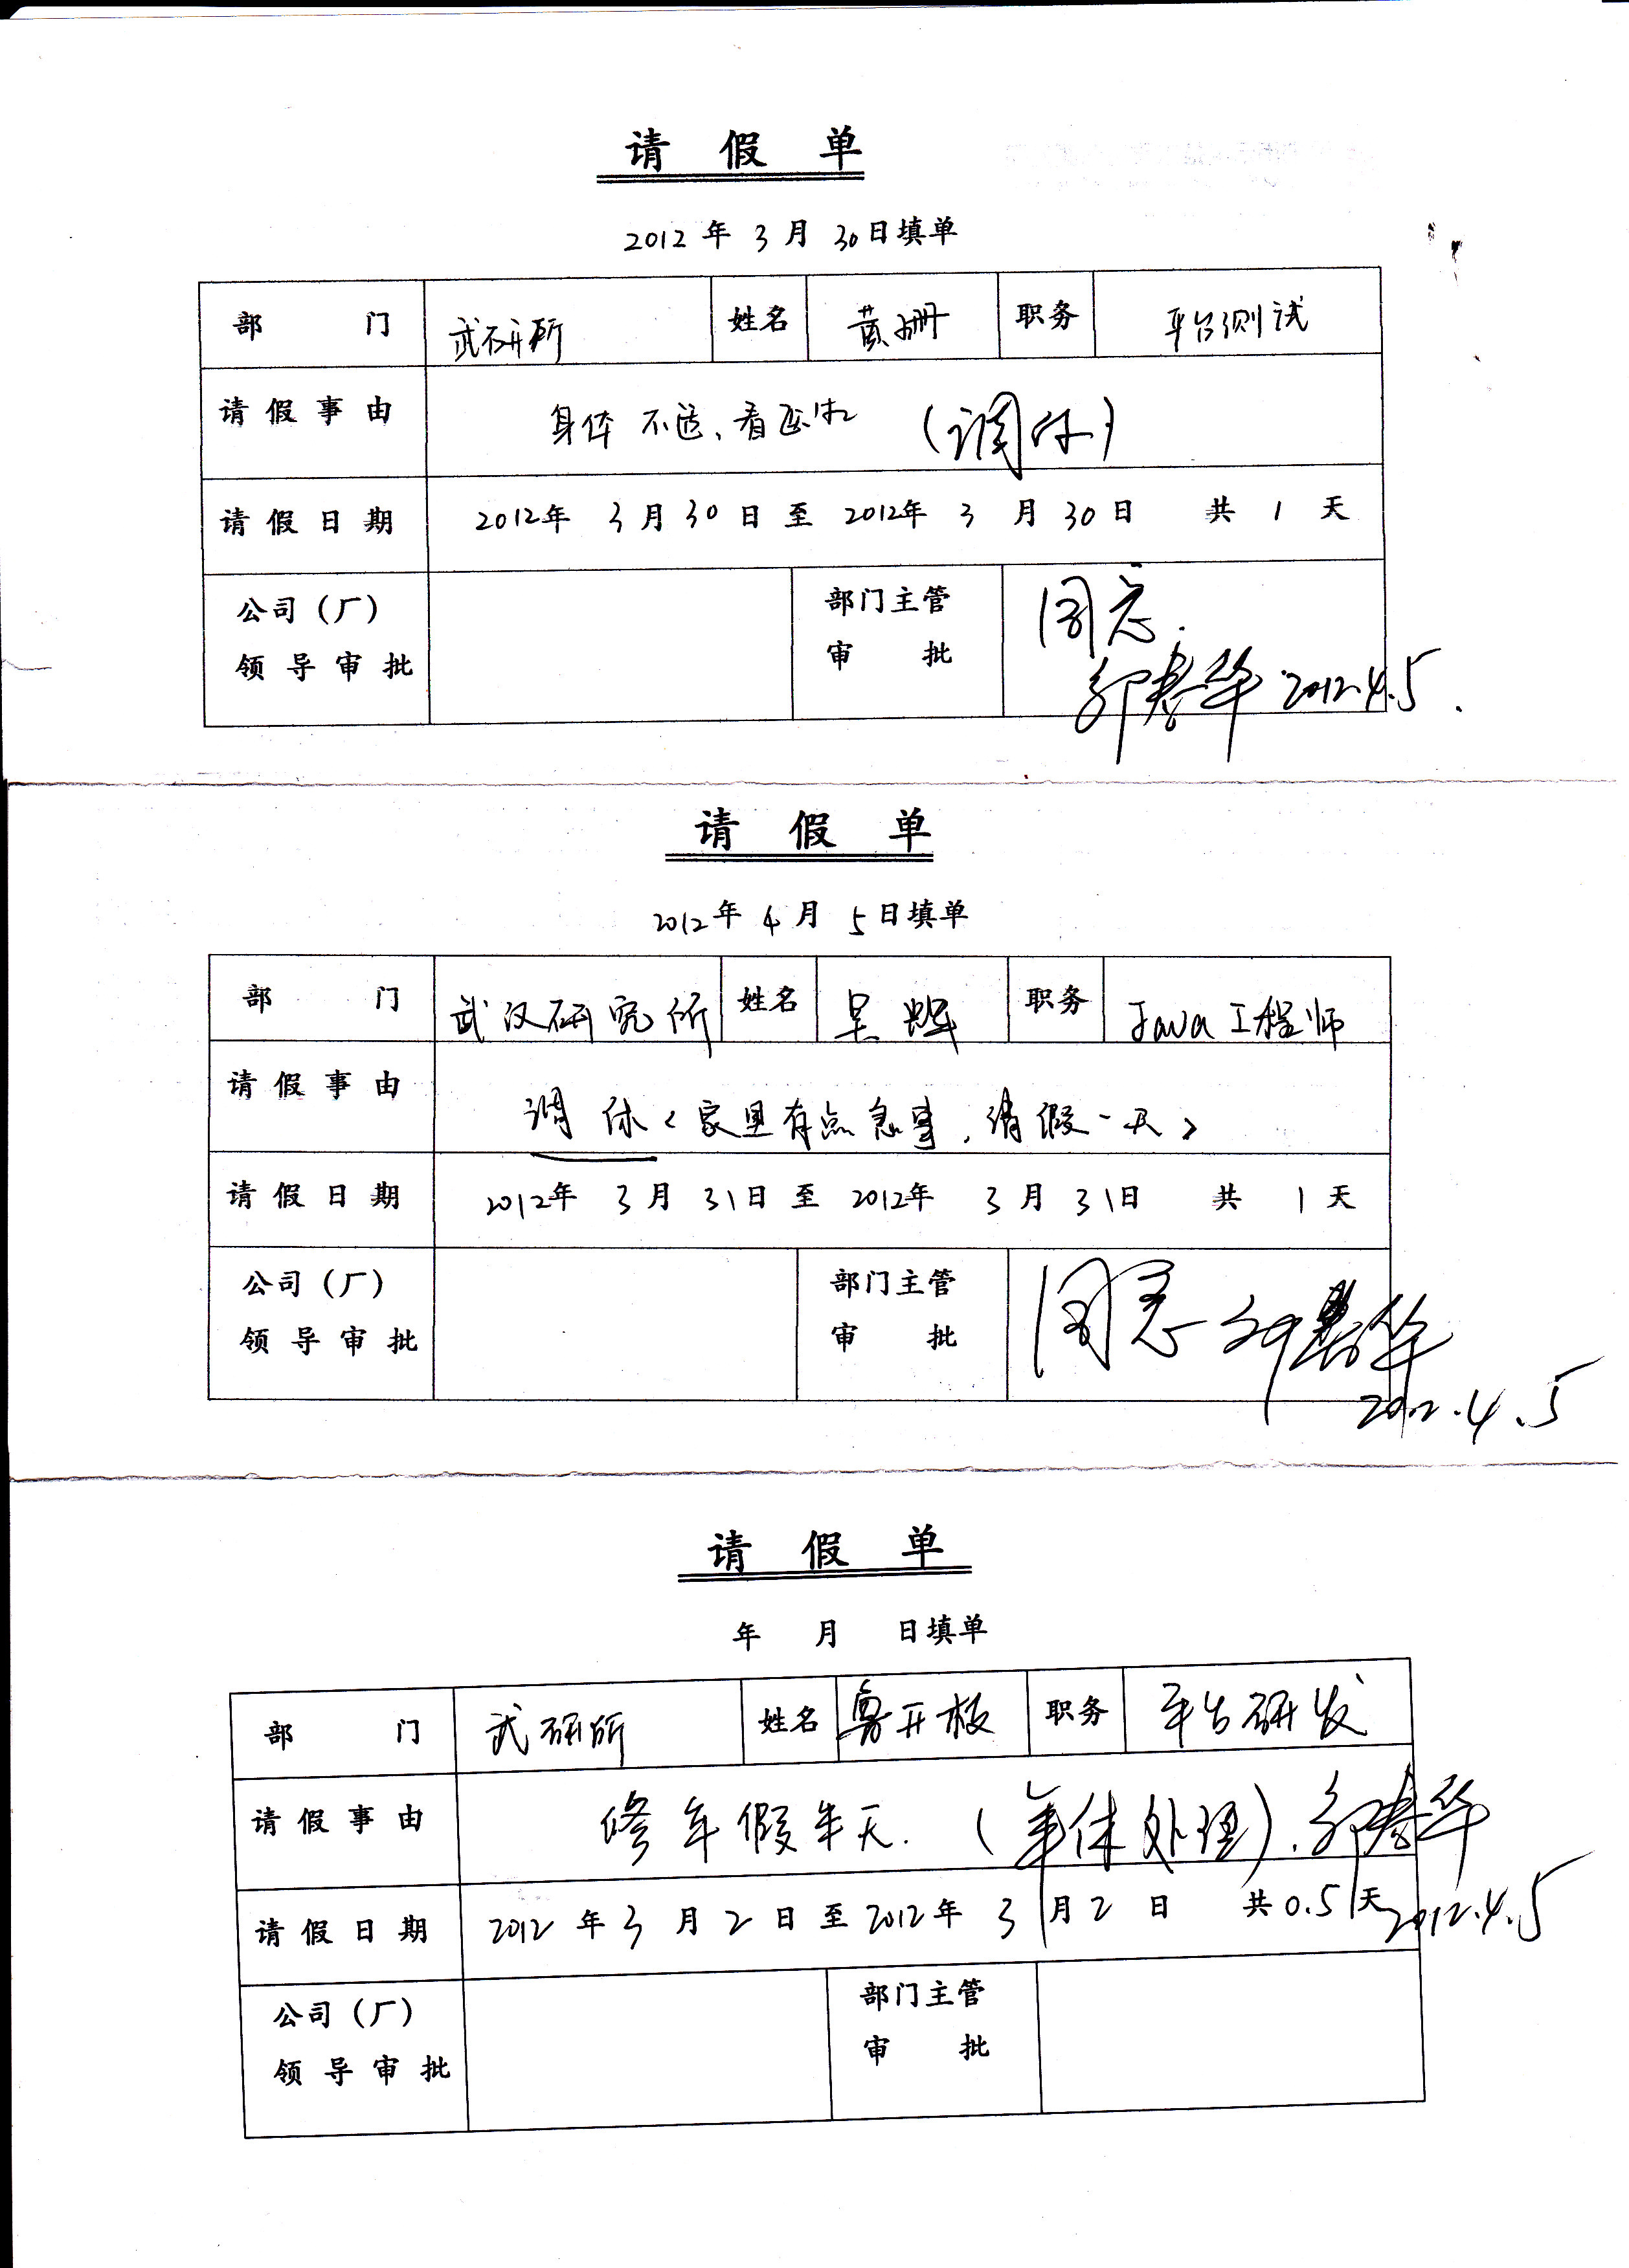 请 假 单
2012 年 3 月 30 日填单
部 门 武研所 姓名 黄珊 职务 平台测试
请 假 事 由 身体不适、看医生 (调休)
请 假 日 期 2012年 3 月 30 日 至 2012年 3 月 30 日 共 1 天
公司（厂） 部门主管 同意.
领 导 审 批 审 批 华 2012.4.5.
请 假 单
2012年 4 月 5 日填单
部 门 武汉研究所 姓名 吴 职务 Java工程师
请 假 事 由 调休<家里有点急事, 请假一天>
请 假 日 期 2012年 3 月 31日 至 2012年 3 月 31日 共 1 天
公司（厂） 部门主管 同意 华
领 导 审 批 审 批 2012.4.5
请 假 单
年 月 日填单
部 门 武研所 姓名 鲁开板 职务 平台研发
请 假 事 由 修年假半天. (年休处理). 华
请 假 日 期 2012 年 3 月 2 日 至 2012 年 3 月 2 日 共 0.5 天 2012.4.5
公司（厂） 部门主管
领 导 审 批 审 批